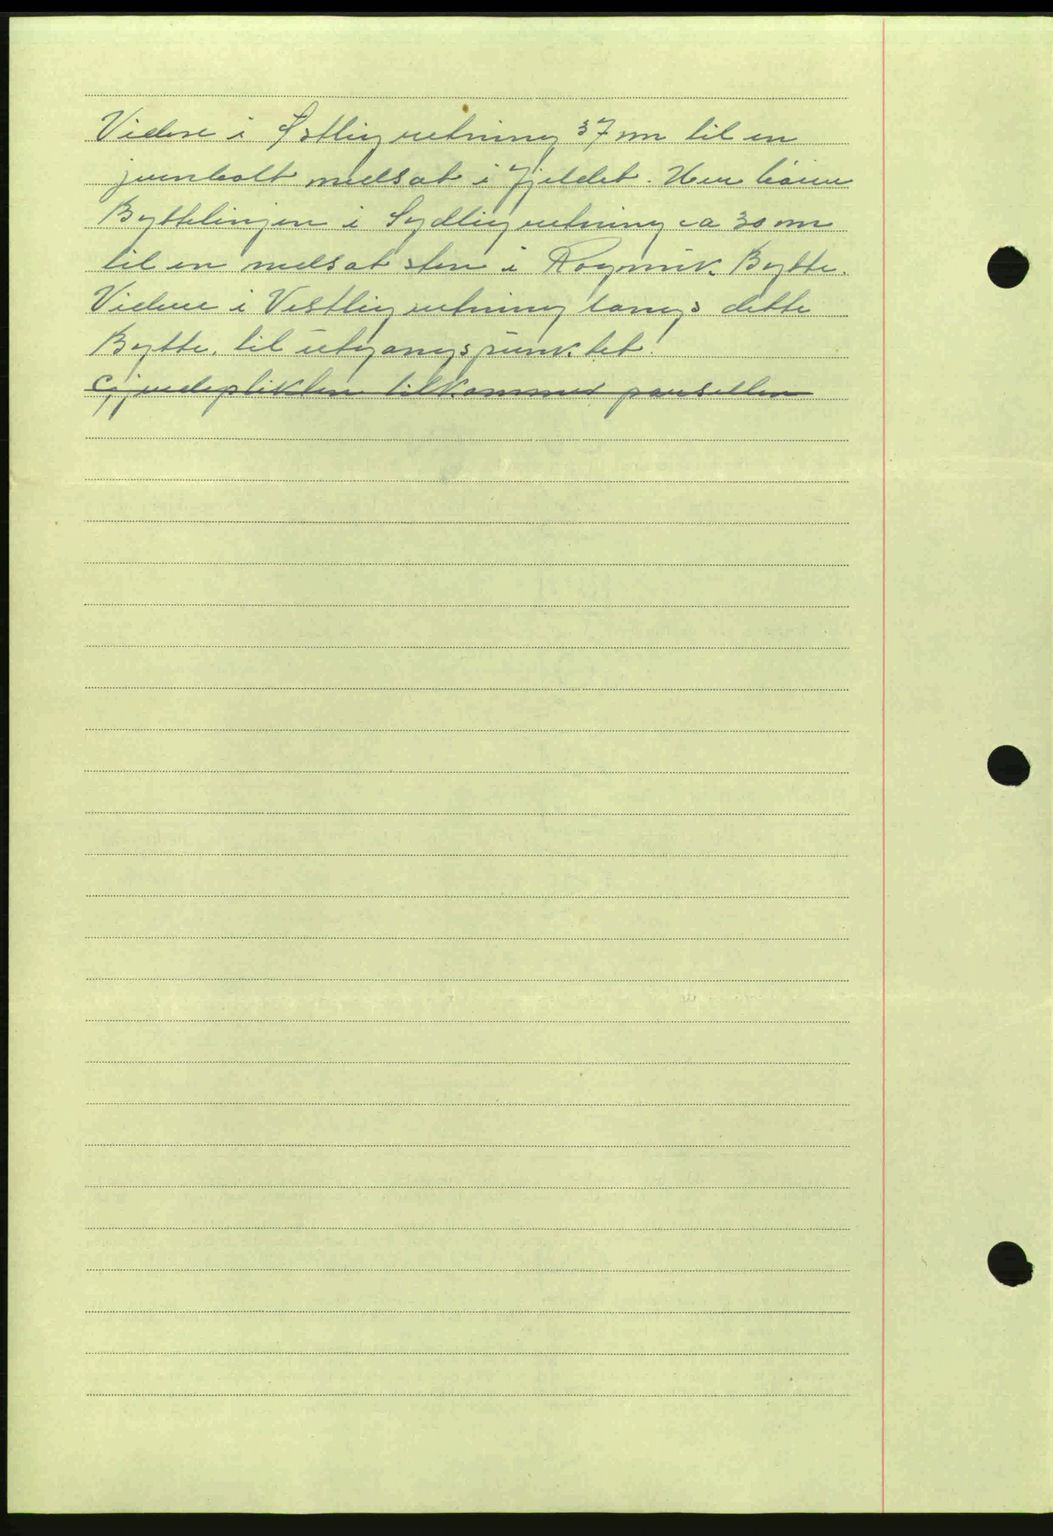 Videre i Østlig retning 37 m til en
jernbolt nedsat i fjeldet. Her bøier
Byttelinjen i Sydlig retning ca 30 m
til en nedsat sten i Bytte.
Videre i Vestlig retning langs dette
Bytte, til utgangspunktet.
Gjerdeplikten tilkommer parsellen